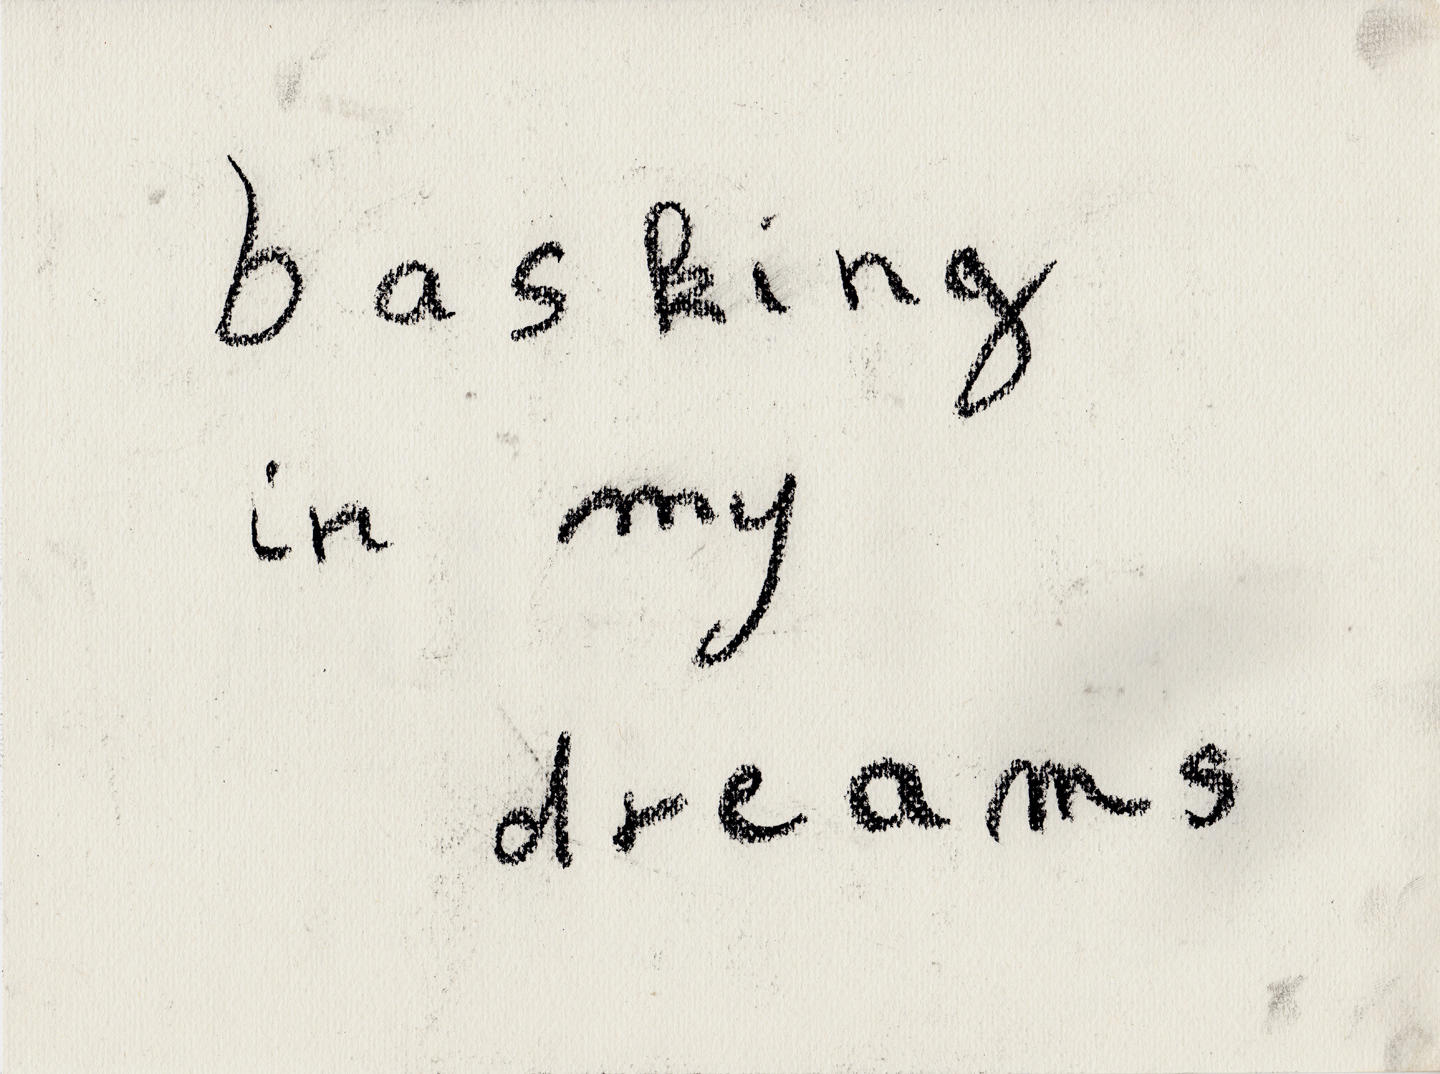 basking
in my
dreams